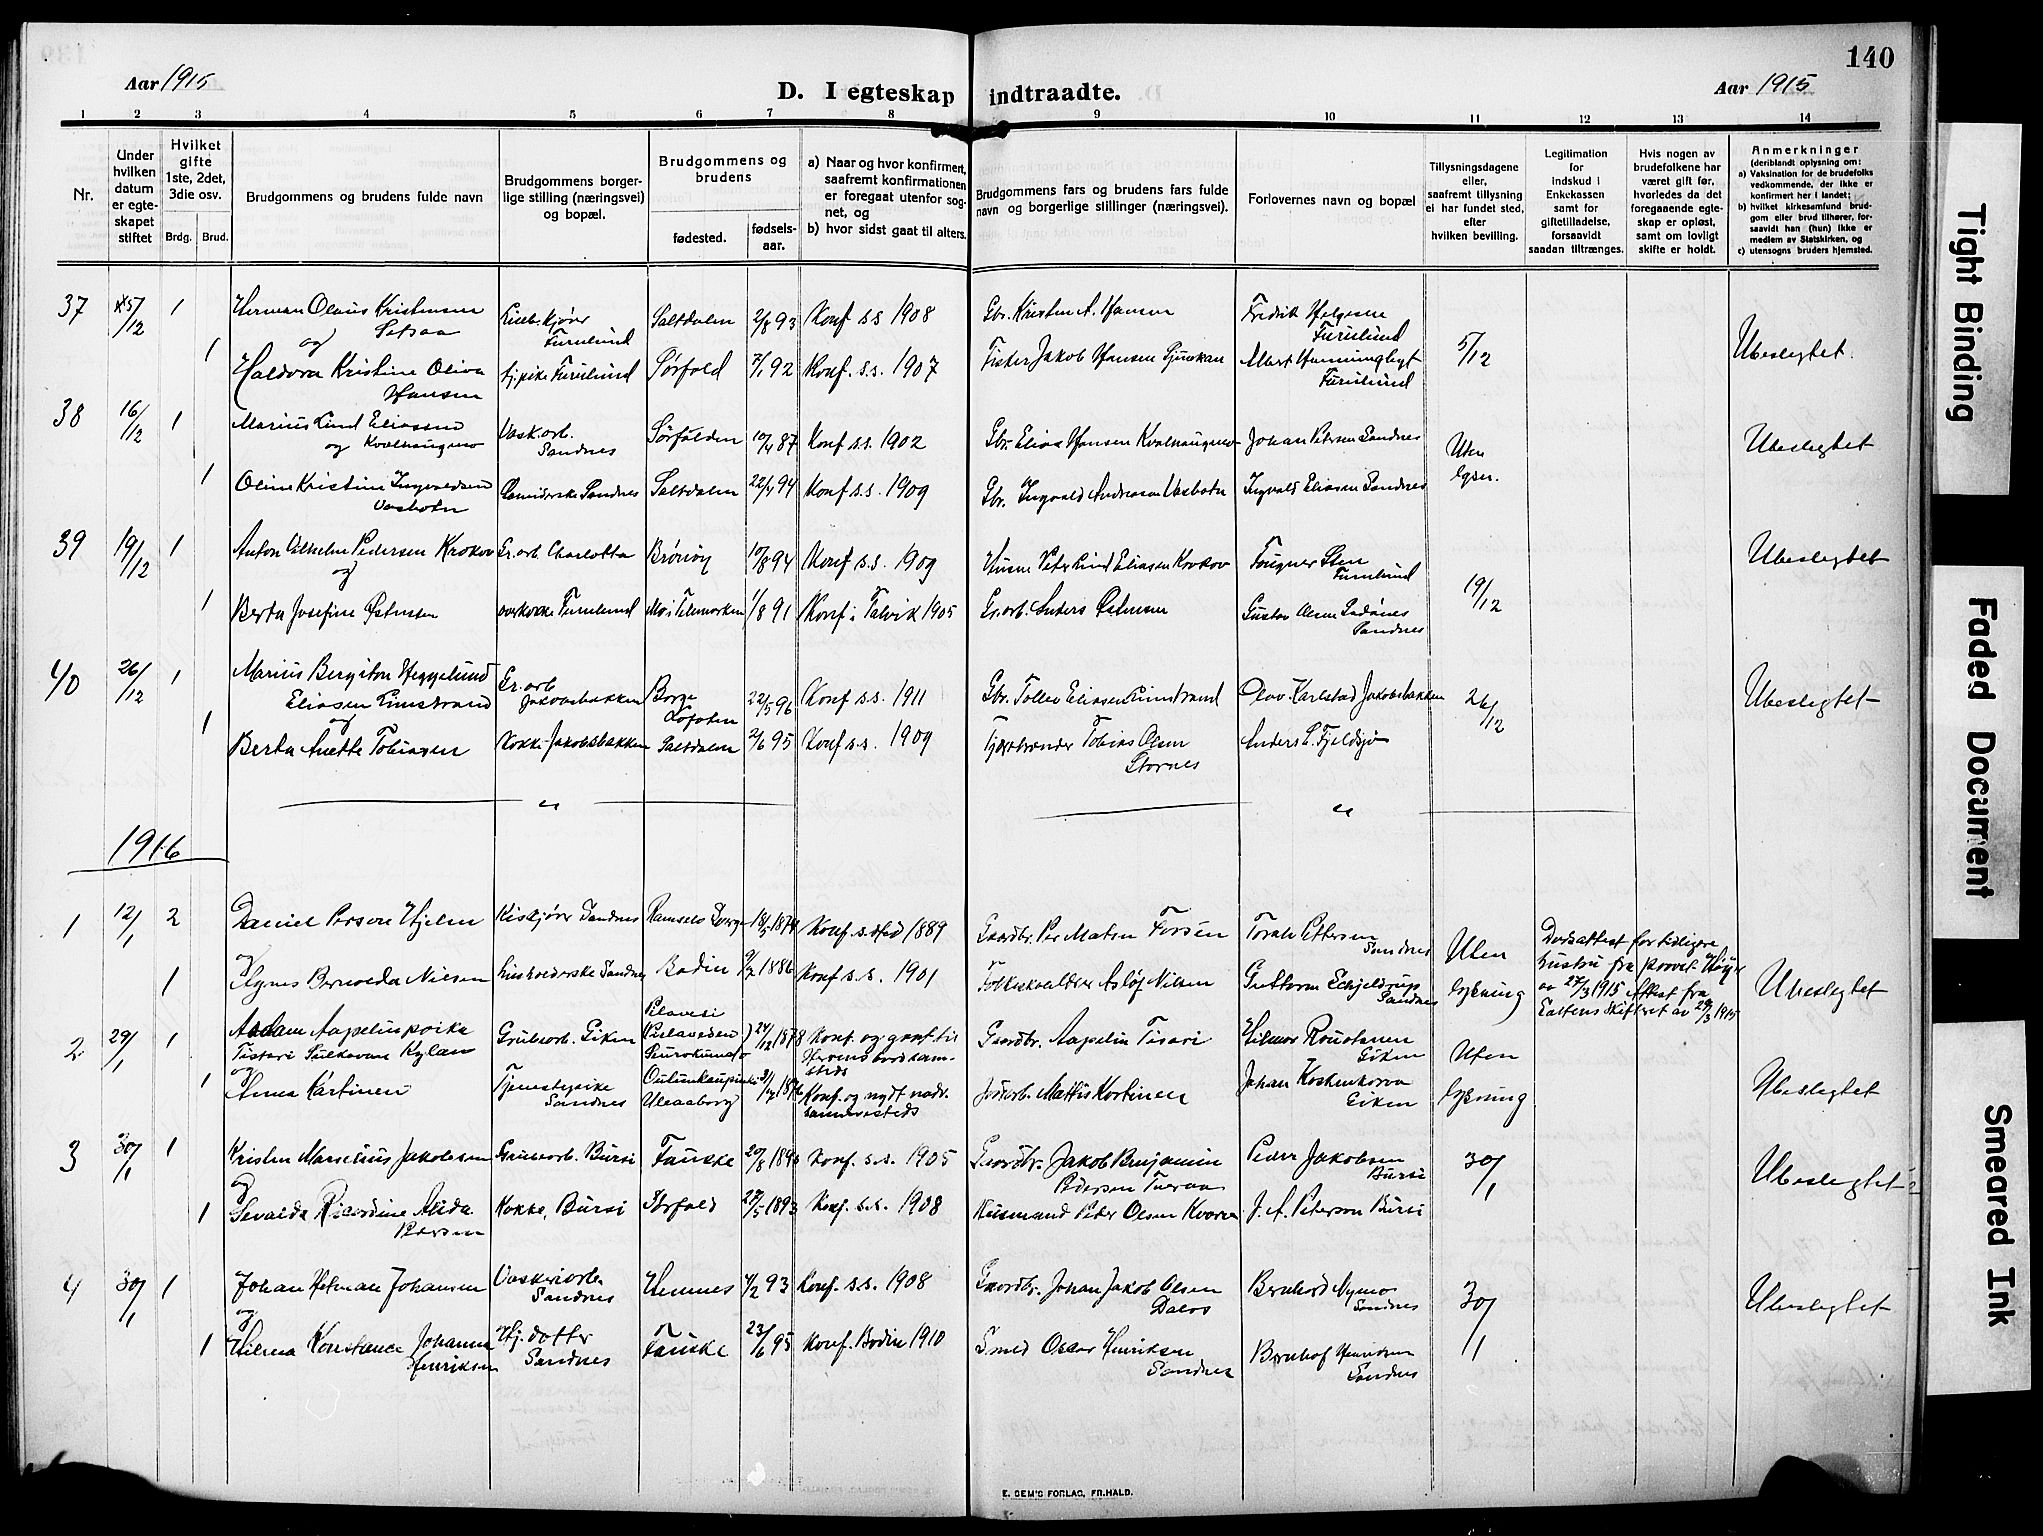 140
Aar 1915
D. I egteskap indtraadte.
Aar 1915
1 2 3 4 5 6 7 8 9 10 11 12 13 14
Nr.
Under hvilken datum er egteskapet stiftet
Hvilket gifte 1ste, 2det, 3die osv.
Brdg. Brud.
Brudgommens og brudens fulde navn
Brudgommens borgerlige stilling (næringsvei) og bopæl.
Brudgommens og brudens
fødested. fødselsaar.
a) Naar og hvor konfirmert, saafremt konfirmationen er foregaat utenfor sognet, og
b) hvor sidst gaat til alters.
Brudgommens fars og brudens fars fulde navn og borgerlige stillinger (næringsvei).
Forlovernes navn og bopæl
Tillysningsdagene eller, saafremt tillysning ei har fundet sted, efter hvilken bevilling.
Legitimation for Indskud i Enkekassen samt for giftetilladelse, forsaavidt saadan tiltrænges.
Hvis nogen av brudefolkene har været gift før, hvorledes da det foregaaende egteskap er opløst, samt om lovligt skifte er holdt.
Anmerkninger
(deriblandt oplysning om:
a) Vaksination for de brudefolks vedkommende, der ikke er konfirmert her i landet;
b) hvilket kirkesamfund brudgom eller brud tilhører, forsaavidt han (hun) ikke er medlem av Statskirken, og
c) utensogns bruders hjemsted.
37 5/12 1 Herman Olaus Kristensen Furulund Saltdalen 2/8 93 Konf. s.s. 1908 Gbr. Kristen A. Hansen Fredrik Helgesen Furulund 5/12 Ubeslegtet.
og
1 Haldora Kristine Oliva Hansen tj.pike Furulund Sørfold 7/1 92 Konf. s.s. 1907 Fisker Jakob Hansen Albert Furulund
38 16/12 1 Marius Lind Eliassen Kvalhaugmo Vask.arb. Sandnes Sørfolden 10/4 87 Konf s.s. 1902 Gbr. Elias Hansen Kvalhaugmo Johan Petersen Sandnes Uten lysn. Ubeslegtet
og
1 Oline Kristine Ingvaldsen Vasbotn Sandnes Saltdalen 22/4 94 Konf s.s. 1909 Gbr. Ingvald Andreasen Vasbotn Ingvald Eliasen Sandnes
39 19/12 1 Anton Vilhelm Pedersen Gr.arb. Charlotta Brønøy 10/8 94 Konf s.s. 1909 Husm. Peter Lind Eliasen Fougner Sten Furulund 19/12 Ubeslegtet
og
1 Berta Josefine Østensen Furulund Mo i Telemarken 1/8 91 Konf i Talvik 1905 Gr.arb. Anders Østensen Gustav Olsen Sandnes
40 26/12 1 Marius Bergiton Heggelund Eliasen Limstrand Gr.arb. Jakobsbakken Borge Lofoten 22/5 96 Konf s.s. 1911 Gbr. Tollev Eliasen Limstrand Olav Karlstad Jakobsbakken 26/12 Ubeslegtet
og
1 Berta Anette Tobiasen Kokke Jakobsbakken Saltdalen 2/6 95 Konf s.s. 1909 Tobias Olsen Stornes Anders L. Fjeldsjø
1916
1 12/1 2 Daniel Person Hjelm Kiskjører Sandnes Ramsele Sverge 18/5 1874 Konf. s.sted 1889 Gaardbr. Per Matsen Forsen Torald Pettersen Sandnes Uten lysning
og
1 Agnes Bernolda Nilsen Sandnes Bodin 9/2 1886 Konf s.s. 1901 Nilsen Guttorm Schjeldrup Sandnes Ubeslegtet
Dødsattest for tidligere hustru fra provst av 27/3 1915 Attest fra Saltens Skifteret av 29/3 1915
2 29/1 1 Aadam Aapelinpoika Gruvearb. Giken 24/12 1878 Konf. og gaat til Gaardbr. Aapelin Tisari Hilmer Giken Uten lysning
og
1 Anna Kärtinen Tjenestepike Sandnes Uleaaborg Konf. og nydt nadv. sammesteds Mattis Kortinen Johan Koskenkorva Giken Ubeslegtet
3 30/1 1 Kristen Marselius Jakobsen Gruvearb. Bursi Fauske 20/8 Konf. s.s. 1905 Gaardbr. Jakob Benjamin Pedersen Peder Jakobsen Bursi 30/1 Ubeslegtet
og
1 Sevalda Ricardine Alida Pedersen Kokke, Bursi Sørfold 27/5 1893 Konf. s.s. 1908 Husmand Peder Olsen Kvarv J. A. Peterson Bursi
4 30/1 1 Johan Helman Johansen Vaskeriarb. Sandnes Hemnes 4/2 93 Konf. s.s. 1908 Gaardbr. Johan Jakob Olsen Dalos Bernhard Nymo Sandnes 30/1 Ubeslegtet
og
1 Hilma Konstance Johanna Henriksen Hj. datter Sandnes Fauske 23/6 95 Konf. Bodin 1910 Smed Oscar Henriksen Sandnes Bernhof Henriksen Sandnes
E. SEM'S FORLAG, FR.HALD.
Tight Binding
Faded Document
Smeared Ink